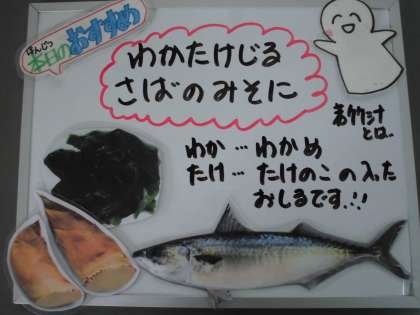 ほんじつ
本日のおすすめ
わかたけじる
さばのみそに
若竹汁
とは、
わか…わかめ
たけ…たけのこの入った
おしるです!!